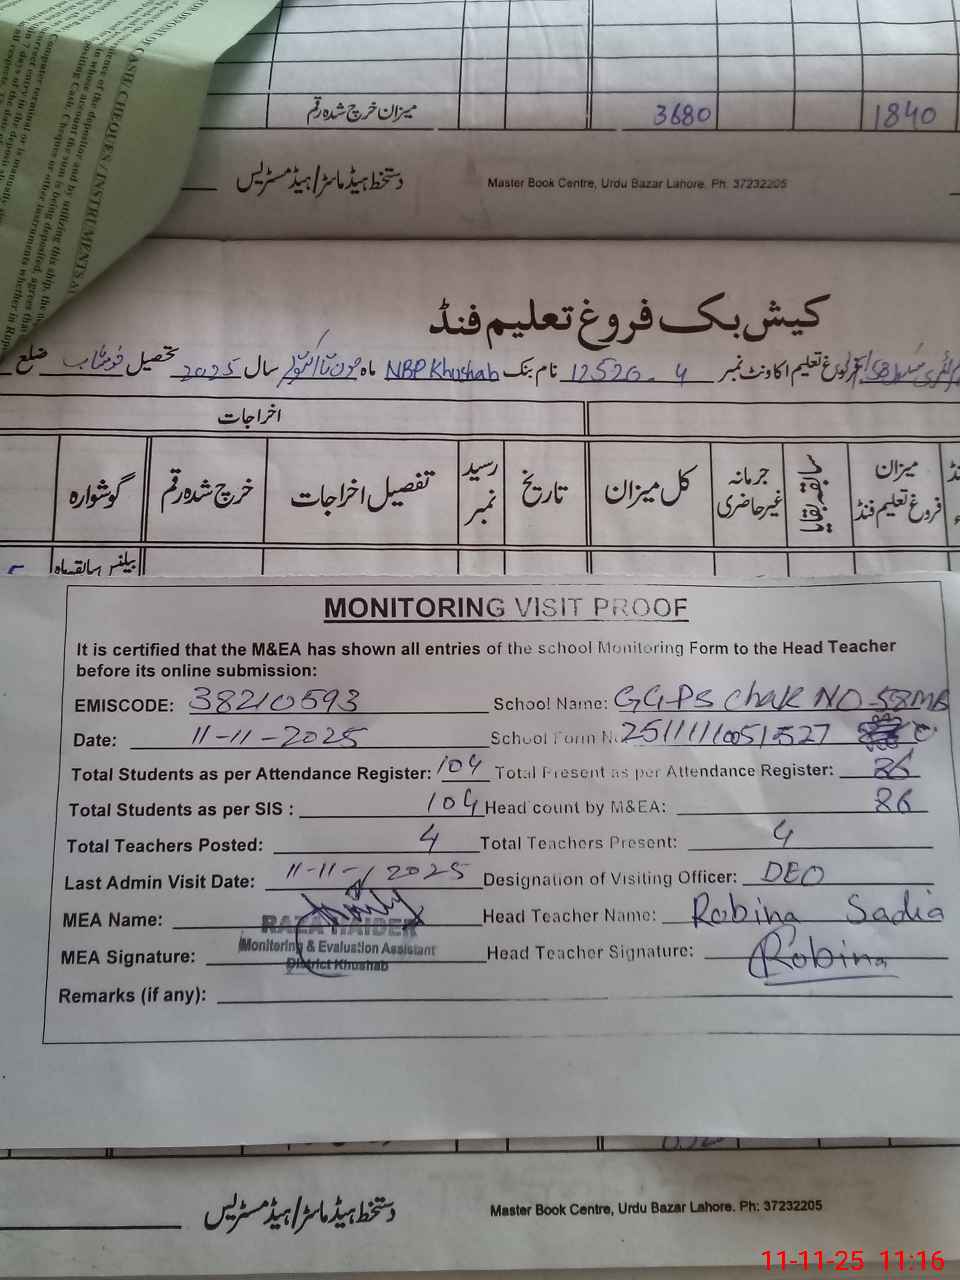 CASH/CHEQUES/INSTRUMENTS
میزان خرچ شدہ رقم 3680 1840
دستخط ہیڈ ماسٹر/ہیڈ مسٹریس Master Book Centre, Urdu Bazar Lahore. Ph: 37232205
کیش بک فروغ تعلیم فنڈ
فروغ تعلیم اکاونٹ نمبر 12526-4 نام بنک NBP Khushab ماہ جون تا اکتوبر سال 2025 تحصیل خوشاب ضلع
اخراجات
میزان فروغ تعلیم فنڈ سابقہ بقایا جرمانہ غیر حاضری کل میزان تاریخ رسید نمبر تفصیل اخراجات خرچ شدہ رقم گوشوارہ
بیلنس سابقہ ماہ
MONITORING VISIT PROOF
It is certified that the M&EA has shown all entries of the school Monitoring Form to the Head Teacher
before its online submission:
EMISCODE: 38210593 School Name: GGPS Chak NO 58MB
Date: 11-11-2025 School Form N. 25111110051527
Total Students as per Attendance Register: 104 Total Present as per Attendance Register: 86
Total Students as per SIS : 104 Head count by M&EA: 86
Total Teachers Posted: 4 Total Teachers Present: 4
Last Admin Visit Date: 11-11-2025 Designation of Visiting Officer: DEO
MEA Name: RAZA HAIDER Head Teacher Name: Robina Sadia
Monitoring & Evaluation Assistant
MEA Signature: District Khushab Head Teacher Signature: Robina
Remarks (if any):
دستخط ہیڈ ماسٹر/ہیڈ مسٹریس Master Book Centre, Urdu Bazar Lahore. Ph: 37232205
11-11-25 11:16